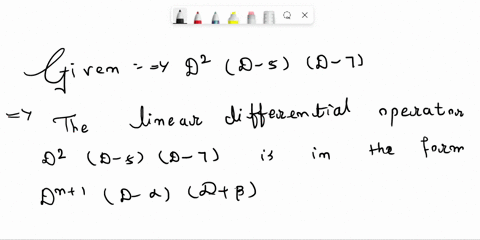 Given => D² (D-5) (D-7)
=> The linear differential operator
D² (D-5) (D-7) is in the form
Dⁿ⁺¹ (D-α) (D+β)